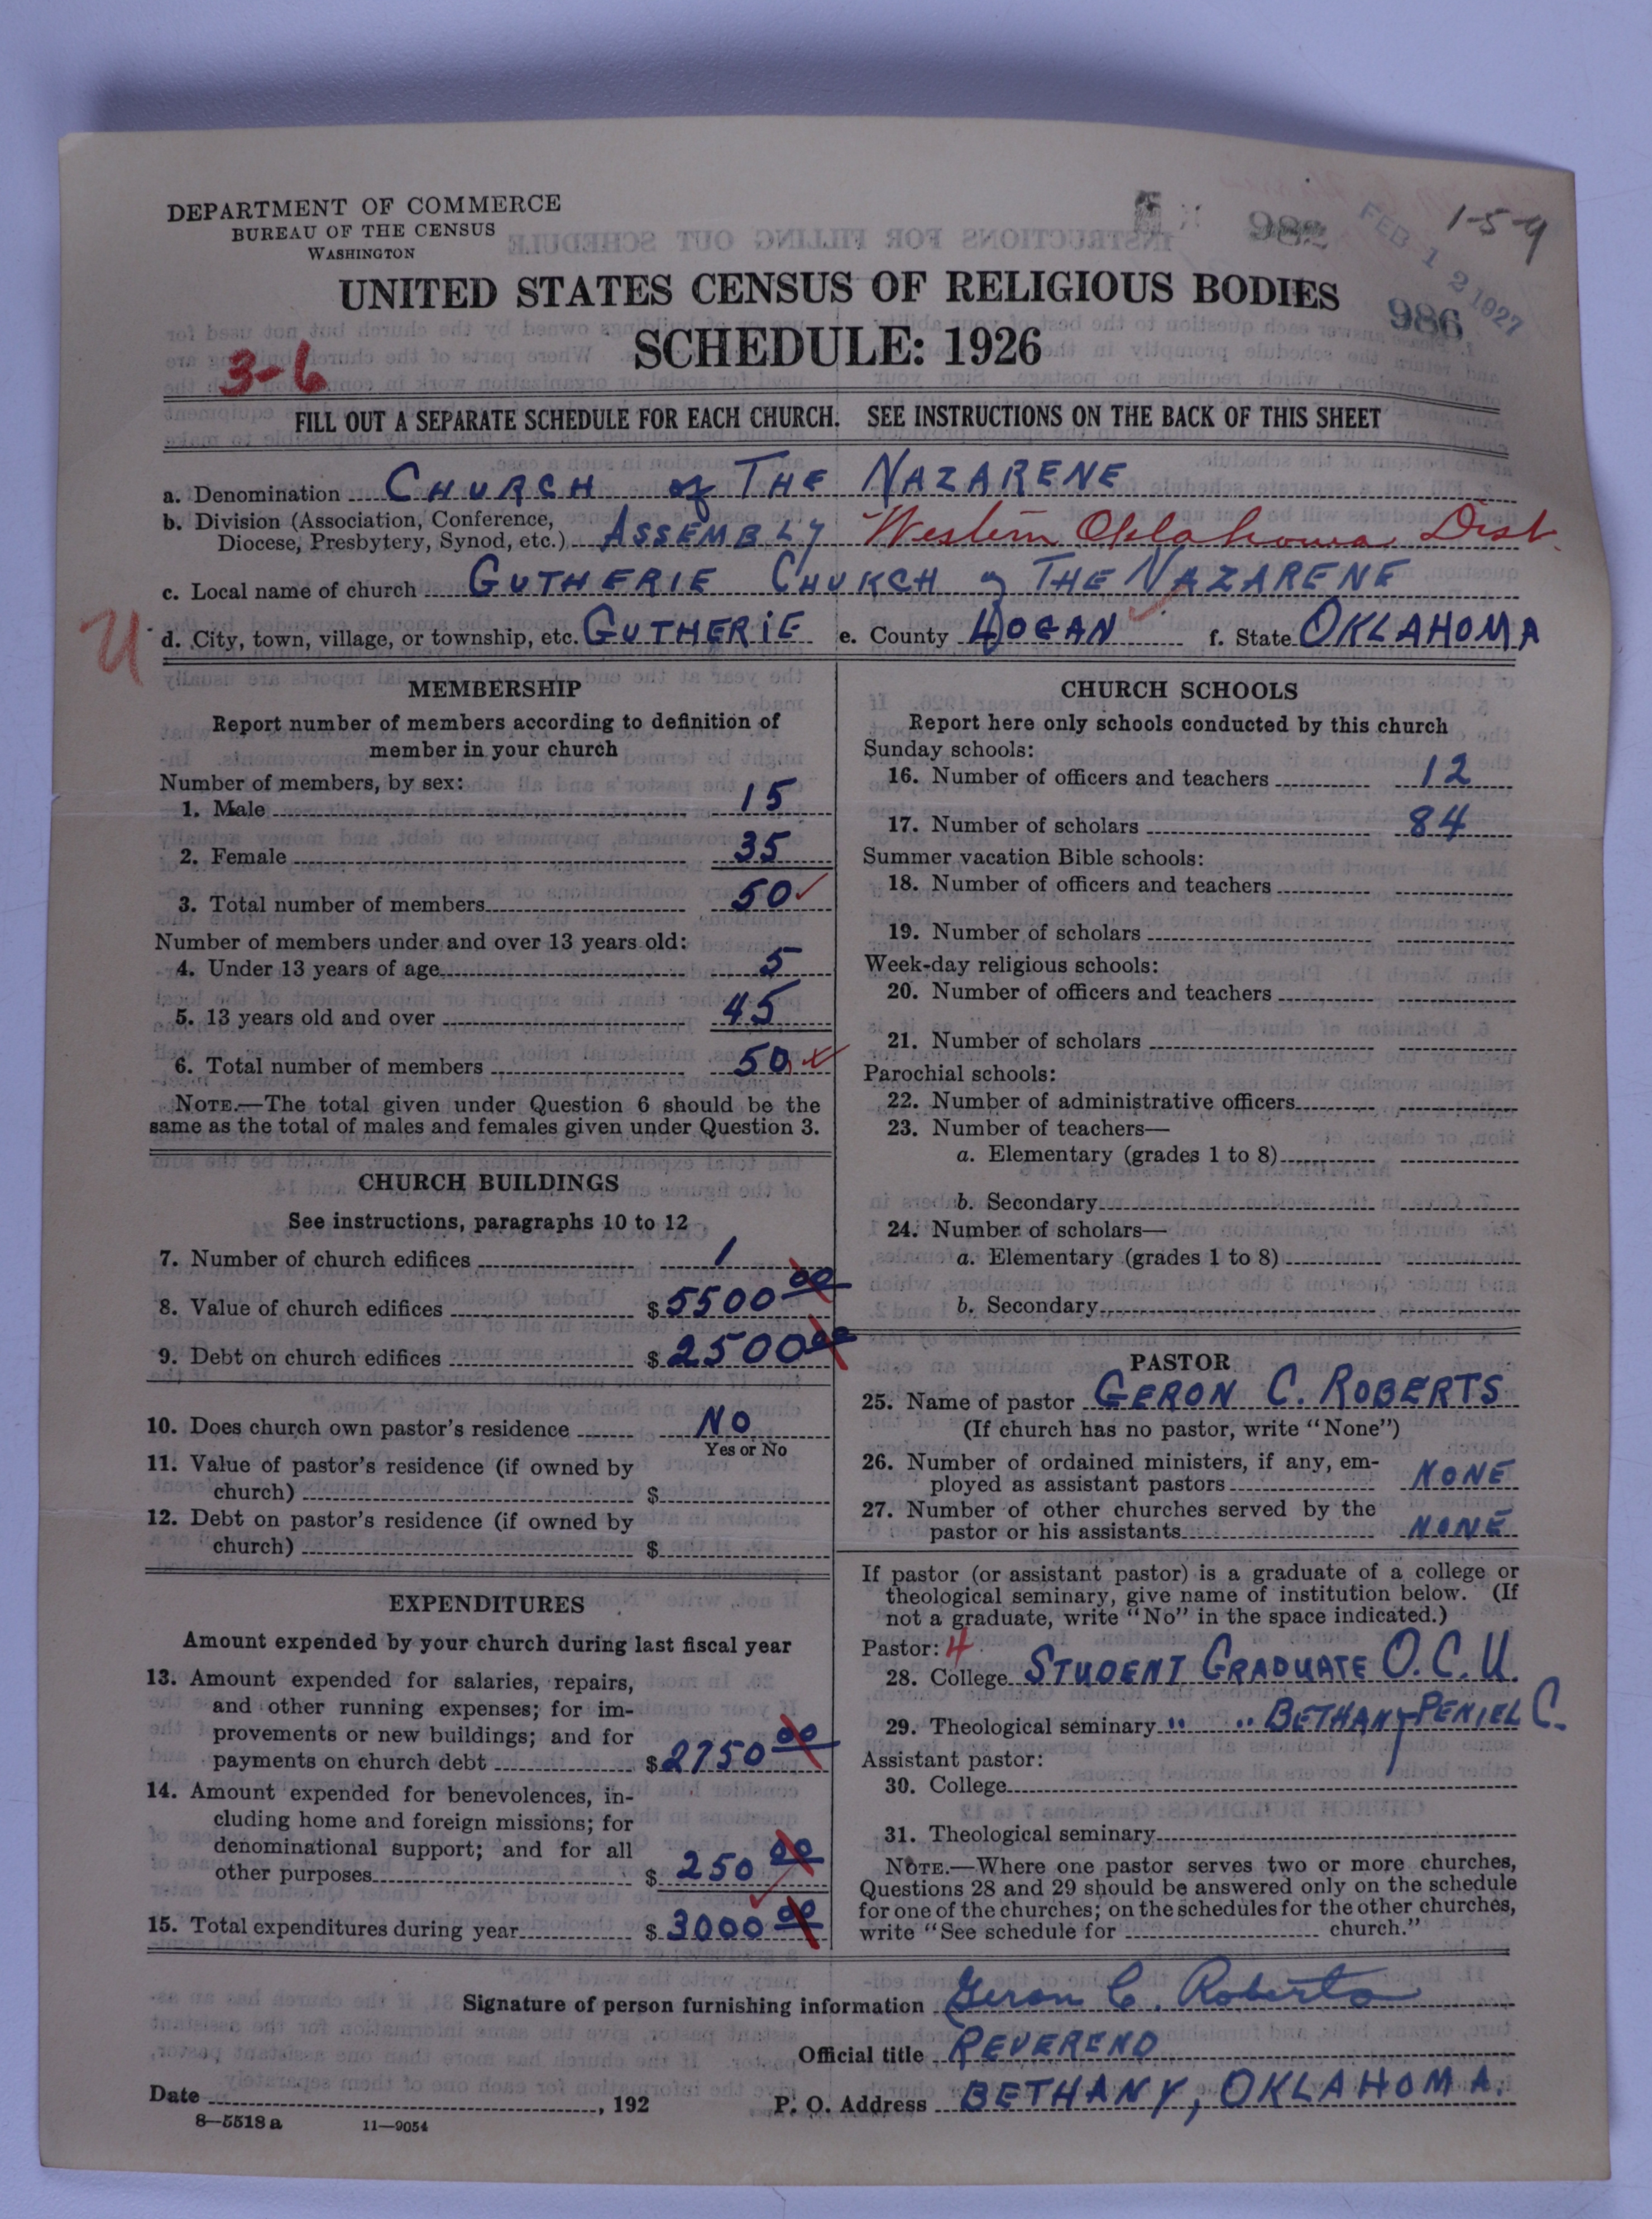 DEPARTMENT OF COMMERCE
BUREAU OF THE CENSUS
WASHINGTON
982
FEB 12 1927
1-5-9
986
UNITED STATES CENSUS OF RELIGIOUS BODIES
SCHEDULE: 1926
3-6
FILL OUT A SEPARATE SCHEDULE FOR EACH CHURCH. SEE INSTRUCTIONS ON THE BACK OF THIS SHEET
a. Denomination CHURCH of THE NAZARENE
b. Division (Association, Conference,
Diocese, Presbytery, Synod, etc.) ASSEMBLY Western Oklahoma Dist.
c. Local name of church GUTHERIE CHURCH of THE NAZARENE
U d. City, town, village, or township, etc. GUTHERIE e. County LOGAN f. State OKLAHOMA
MEMBERSHIP
Report number of members according to definition of
member in your church
Number of members, by sex:
1. Male 15
2. Female 35
3. Total number of members 50
Number of members under and over 13 years old:
4. Under 13 years of age 5
5. 13 years old and over 45
6. Total number of members 50
NOTE.—The total given under Question 6 should be the
same as the total of males and females given under Question 3.
CHURCH BUILDINGS
See instructions, paragraphs 10 to 12
7. Number of church edifices 1
8. Value of church edifices $5500 00
9. Debt on church edifices $2500 00
10. Does church own pastor's residence NO
Yes or No
11. Value of pastor's residence (if owned by
church) $
12. Debt on pastor's residence (if owned by
church) $
EXPENDITURES
Amount expended by your church during last fiscal year
13. Amount expended for salaries, repairs,
and other running expenses; for im-
provements or new buildings; and for
payments on church debt $2750 00
14. Amount expended for benevolences, in-
cluding home and foreign missions; for
denominational support; and for all
other purposes $250 00
15. Total expenditures during year $3000 00
CHURCH SCHOOLS
Report here only schools conducted by this church
Sunday schools:
16. Number of officers and teachers 12
17. Number of scholars 84
Summer vacation Bible schools:
18. Number of officers and teachers
19. Number of scholars
Week-day religious schools:
20. Number of officers and teachers
21. Number of scholars
Parochial schools:
22. Number of administrative officers
23. Number of teachers—
a. Elementary (grades 1 to 8)
b. Secondary
24. Number of scholars—
a. Elementary (grades 1 to 8)
b. Secondary
PASTOR
25. Name of pastor GERON C. ROBERTS
(If church has no pastor, write "None")
26. Number of ordained ministers, if any, em-
ployed as assistant pastors NONE
27. Number of other churches served by the
pastor or his assistants NONE
If pastor (or assistant pastor) is a graduate of a college or
theological seminary, give name of institution below. (If
not a graduate, write "No" in the space indicated.)
Pastor: 4
28. College STUDENT GRADUATE O.C.U.
29. Theological seminary " " BETHANY PENIEL C.
Assistant pastor:
30. College
31. Theological seminary
NOTE.—Where one pastor serves two or more churches,
Questions 28 and 29 should be answered only on the schedule
for one of the churches; on the schedules for the other churches,
write "See schedule for church."
Signature of person furnishing information Geron C. Roberts
Official title REVEREND
Date , 192 P. O. Address BETHANY, OKLAHOMA.
8—5518 a 11—9054